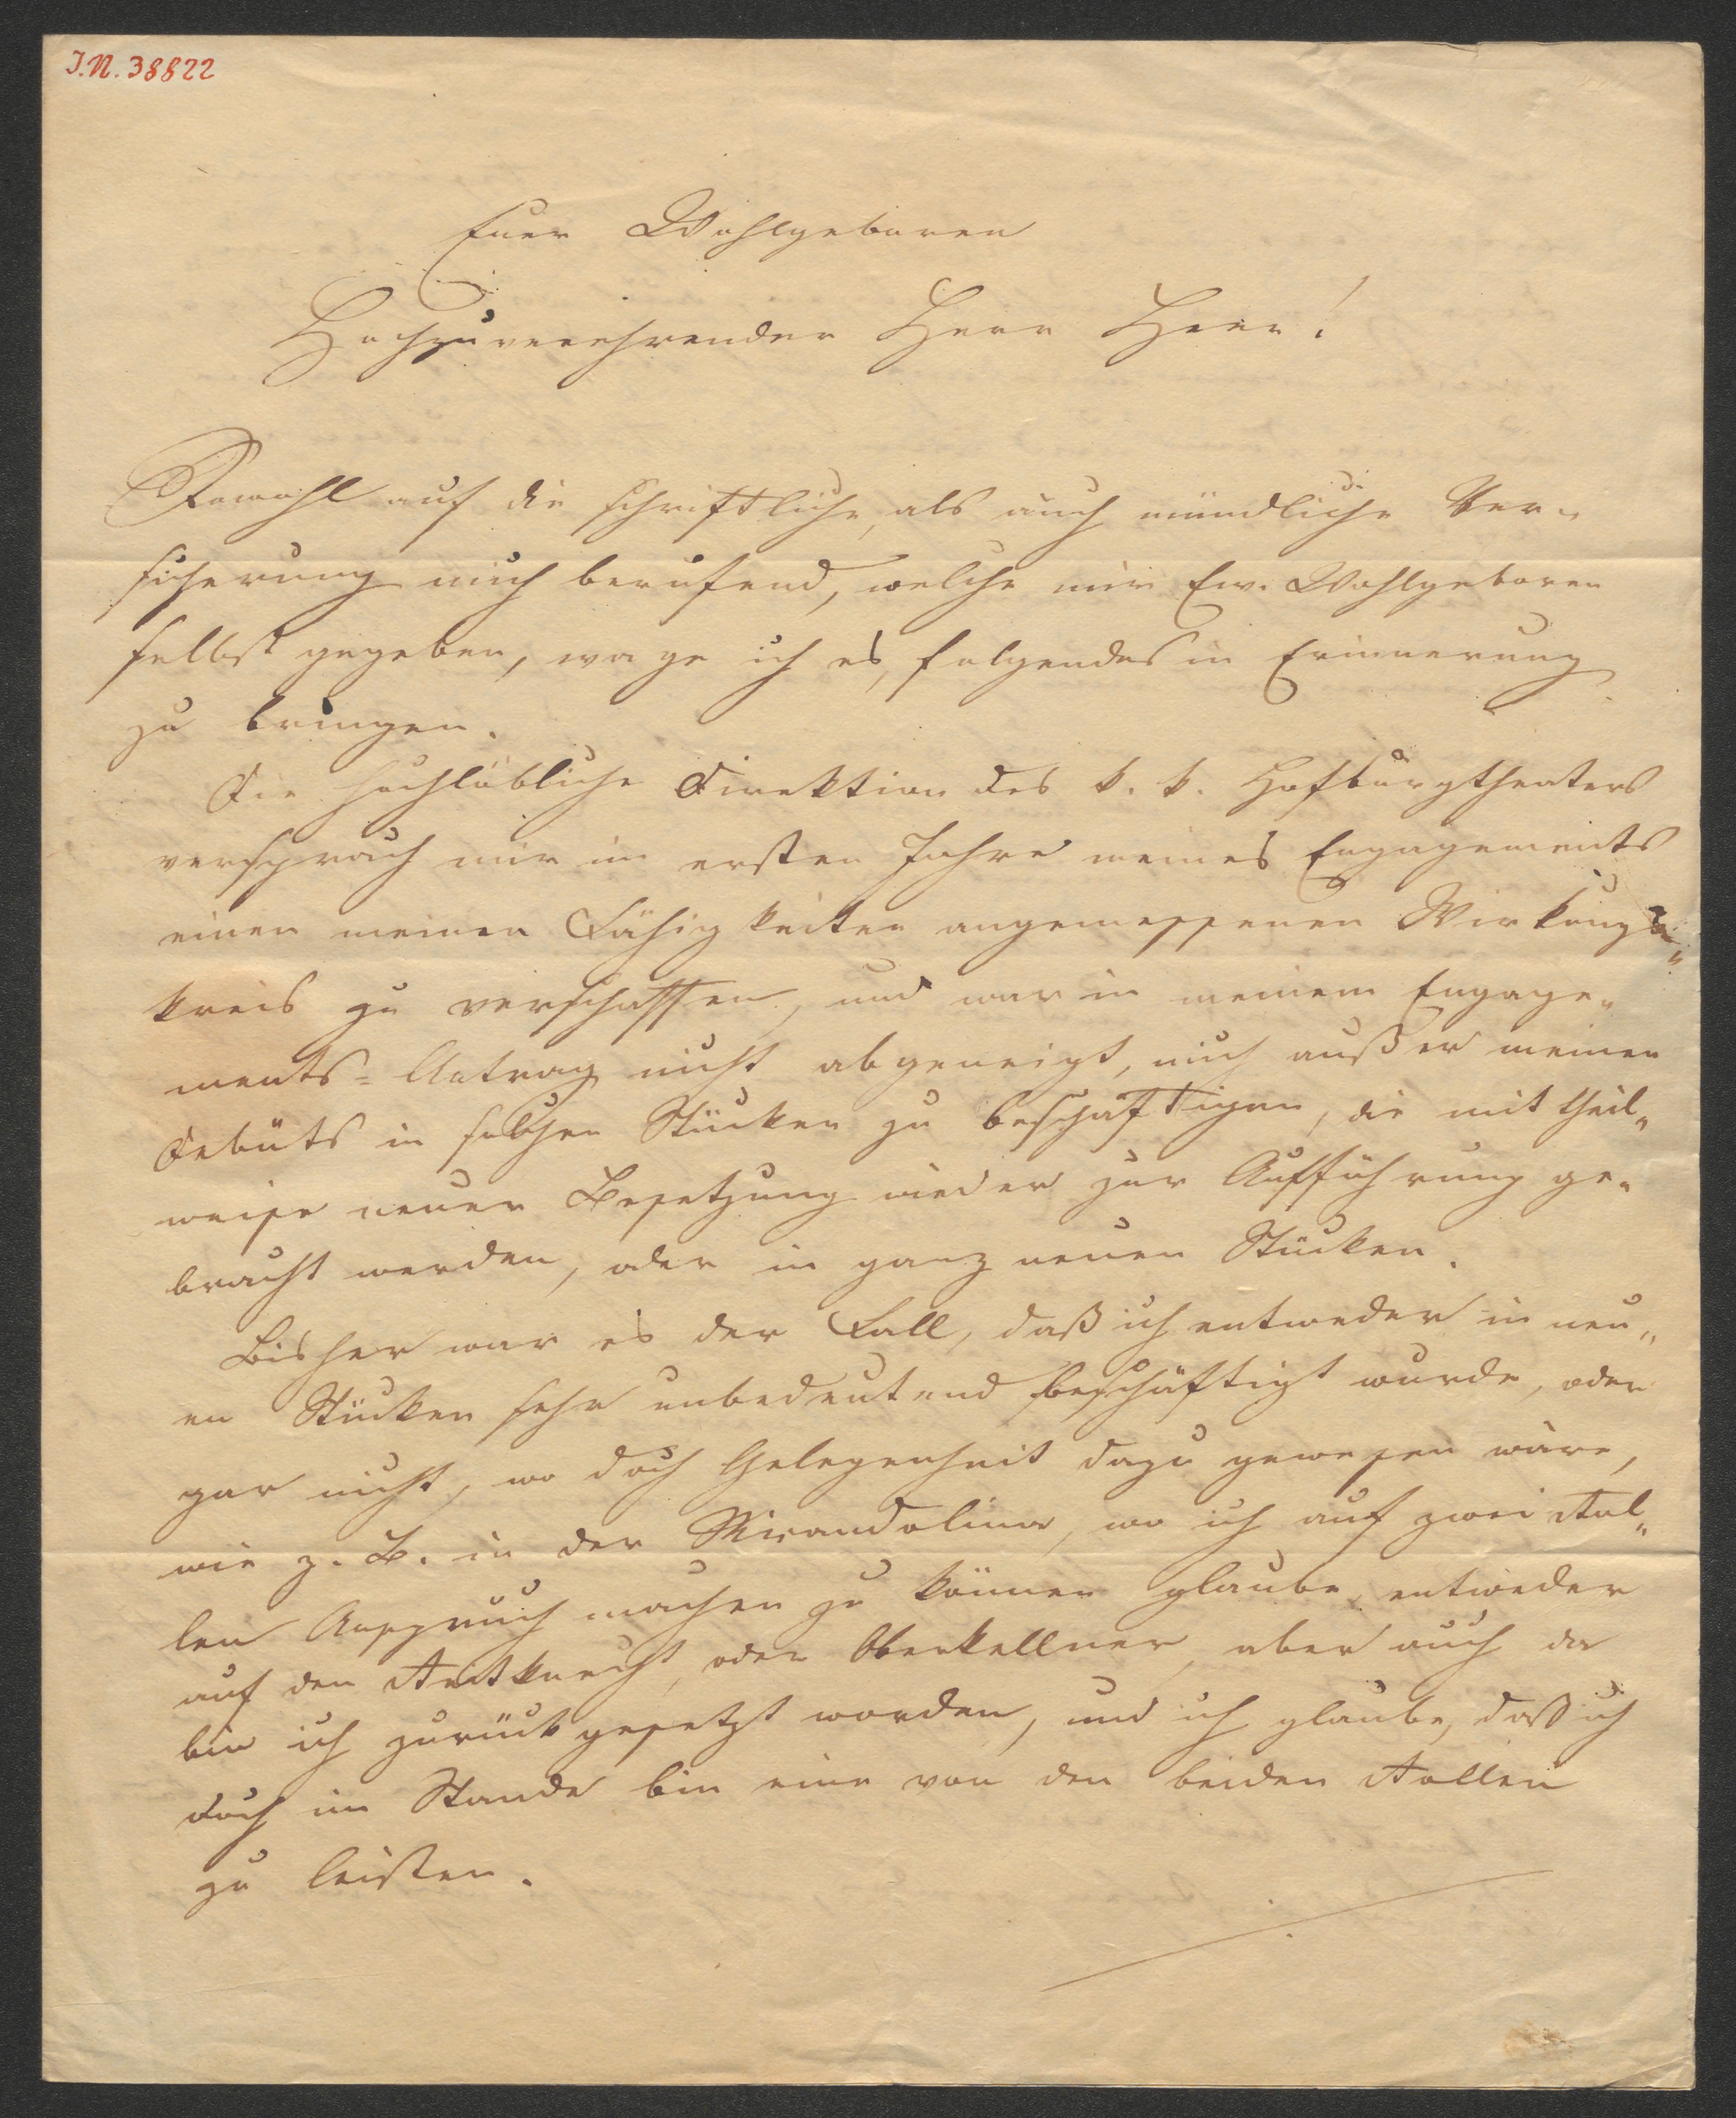 I.N. 38822
Euer Wohlgeboren
Hochzuverehrender Herr Herr!
Sowohl auf die schriftliche, als auch mündliche Ver-
sicherung mich berufend, welche mir Ew. Wohlgeboren
selbst gegeben, wage ich es, folgendes in Erinnerung
zu bringen.
Die hochlöbliche Direktion des k. k. Hofburgtheaters
versprach mir im ersten Jahre meines Engagements
einen meinen Fähigkeiten angemessenen Wirkungs-
kreis zu verschaffen, und war in meinem Engage-
ments-Antrag nicht abgeneigt, mich außer meinen
Debüts in solchen Stücken zu beschäftigen, die mit theil-
weise neuer Besetzung wieder zur Aufführung ge-
bracht werden, oder in ganz neuen Stücken.
Bisher war es der Fall, daß ich entweder in neu-
en Stücken sehr unbedeutend beschäftigt wurde, oder
gar nicht, wo doch Gelegenheit dazu gewesen wäre,
wie z. B. in der Mirandolina, wo ich auf zwei Rol-
len Anspruch machen zu können glaube, entweder
auf den Reitknecht, oder Oberkellner, aber auch da
bin ich zurückgesetzt worden, und ich glaube, daß ich
doch im Stande bin eine von den beiden Rollen
zu leisten.